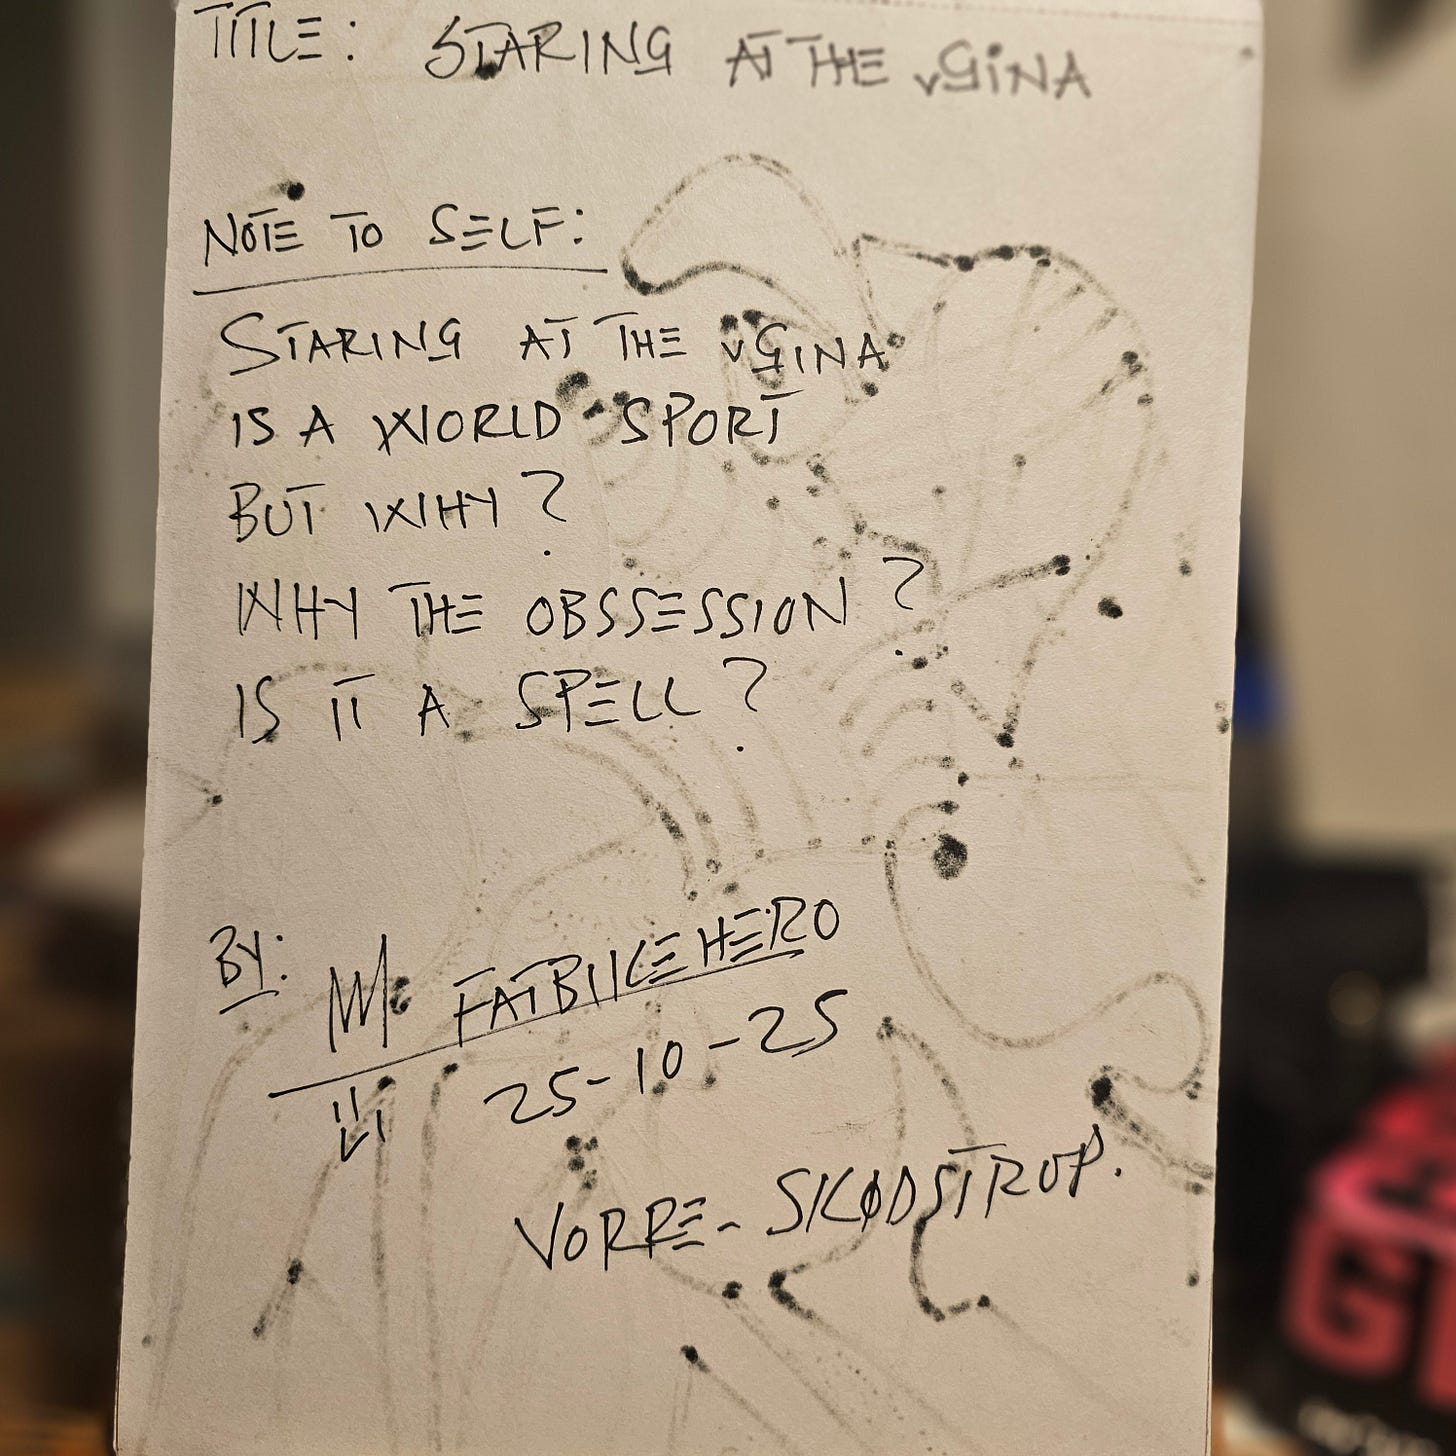 TITLE: STARING AT THE vGiNA
NOTE TO SELF:
STARING AT THE vGINA
IS A WORLD SPORT
BUT WHY?
WHY THE OBSSESSION?
IS IT A SPELL?
BY:
FATBIICEHERO
25-10-25
VORRE- SKØDSTRUP.